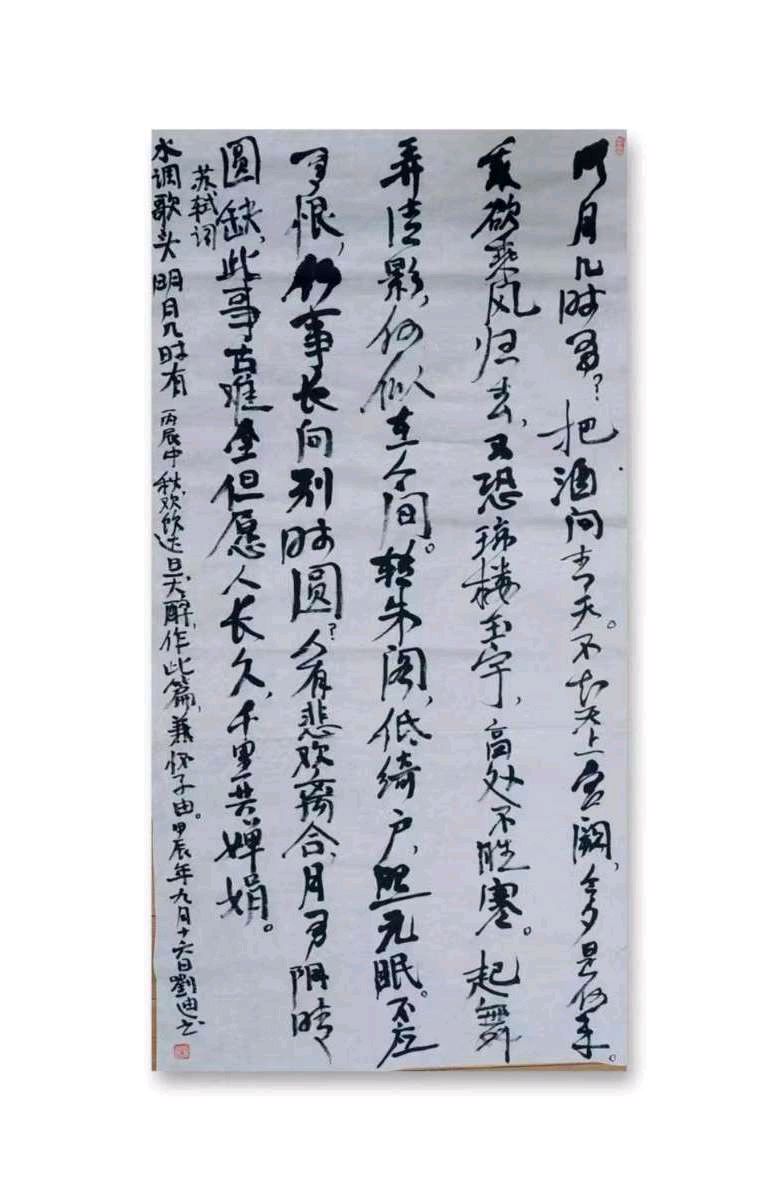 明月几时有?把酒问青天。不知天上宫阙,今夕是何年。
我欲乘风归去,又恐琼楼玉宇,高处不胜寒。起舞
弄清影,何似在人间。转朱阁,低绮户,照无眠。不应
有恨,何事长向别时圆?人有悲欢离合,月有阴晴
圆缺,此事古难全但愿人长久,千里共婵娟。
苏轼词
水调歌头 明月几时有 丙辰中秋欢饮达旦大醉,作此篇,兼怀子由。甲辰年九月十六日劉迪书